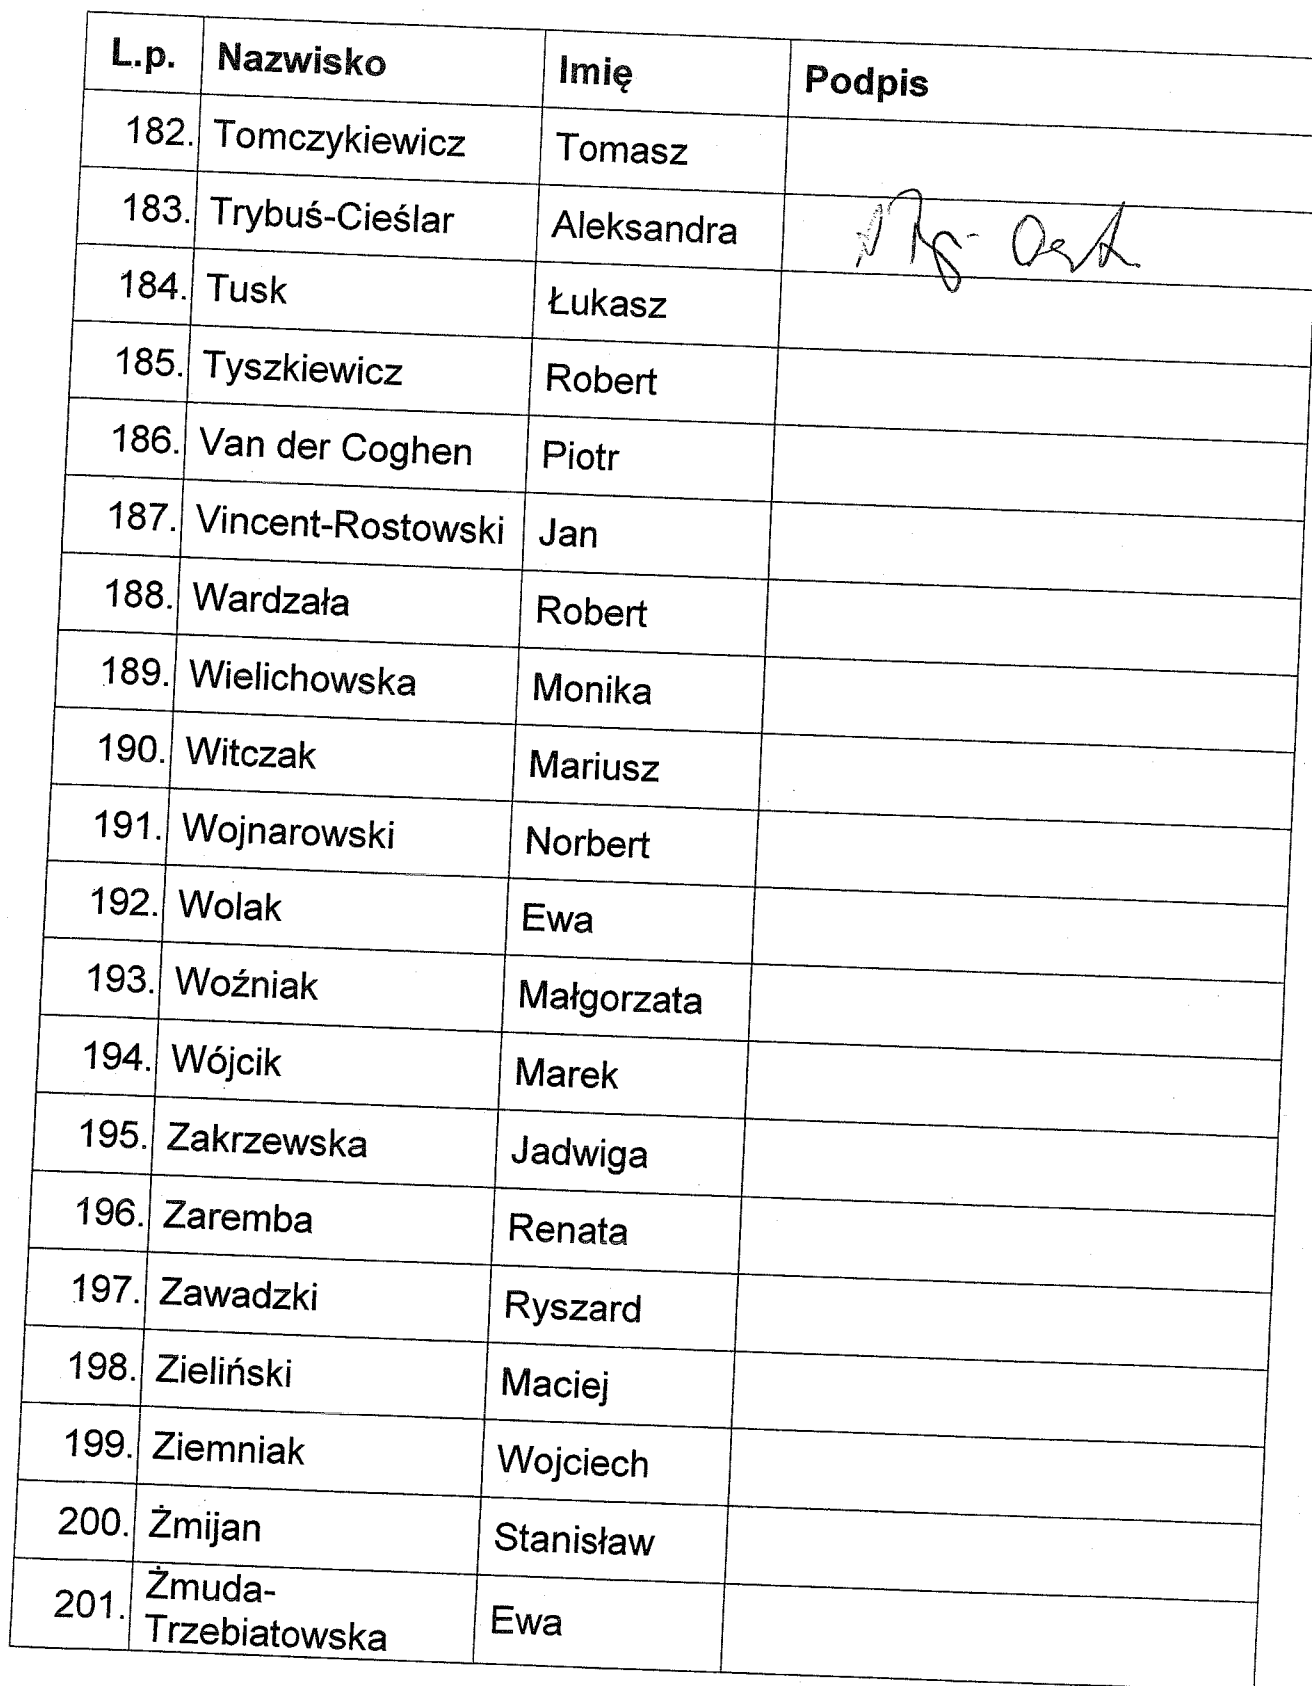 L.p. Nazwisko Imię Podpis
182. Tomczykiewicz Tomasz
183. Trybuś-Cieślar Aleksandra
184. Tusk Łukasz
185. Tyszkiewicz Robert
186. Van der Coghen Piotr
187. Vincent-Rostowski Jan
188. Wardzała Robert
189. Wielichowska Monika
190. Witczak Mariusz
191. Wojnarowski Norbert
192. Wolak Ewa
193. Woźniak Małgorzata
194. Wójcik Marek
195. Zakrzewska Jadwiga
196. Zaremba Renata
197. Zawadzki Ryszard
198. Zieliński Maciej
199. Ziemniak Wojciech
200. Żmijan Stanisław
201. Żmuda-
Trzebiatowska Ewa